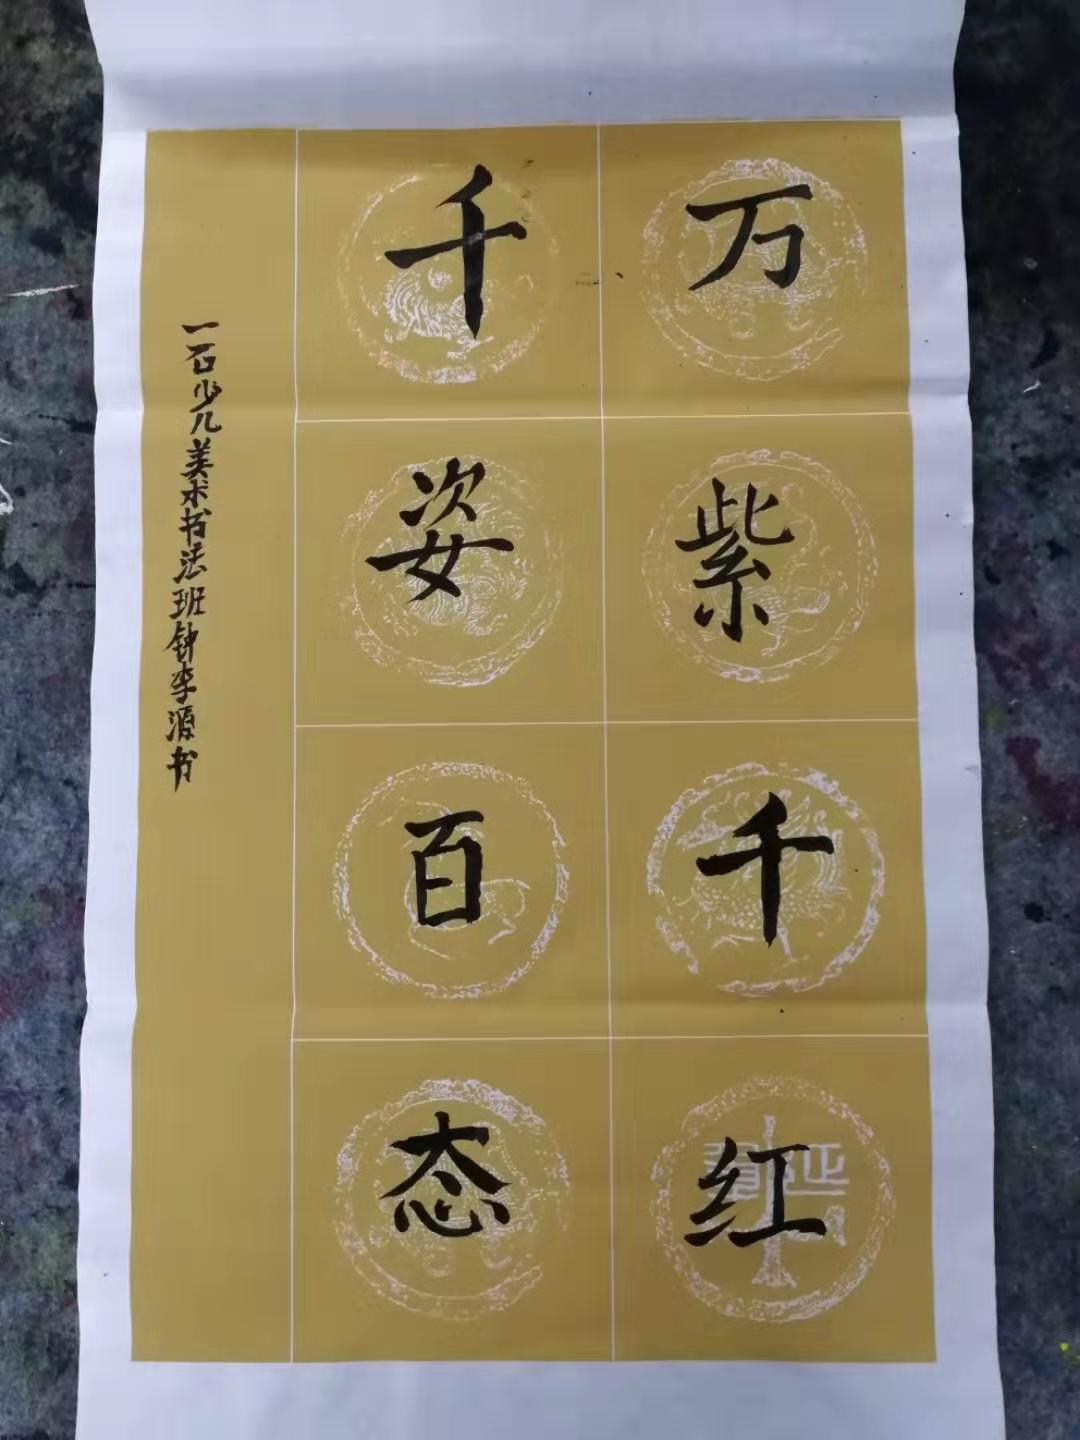 万紫千红
千姿百态
一石少儿美术书法班钟李源书